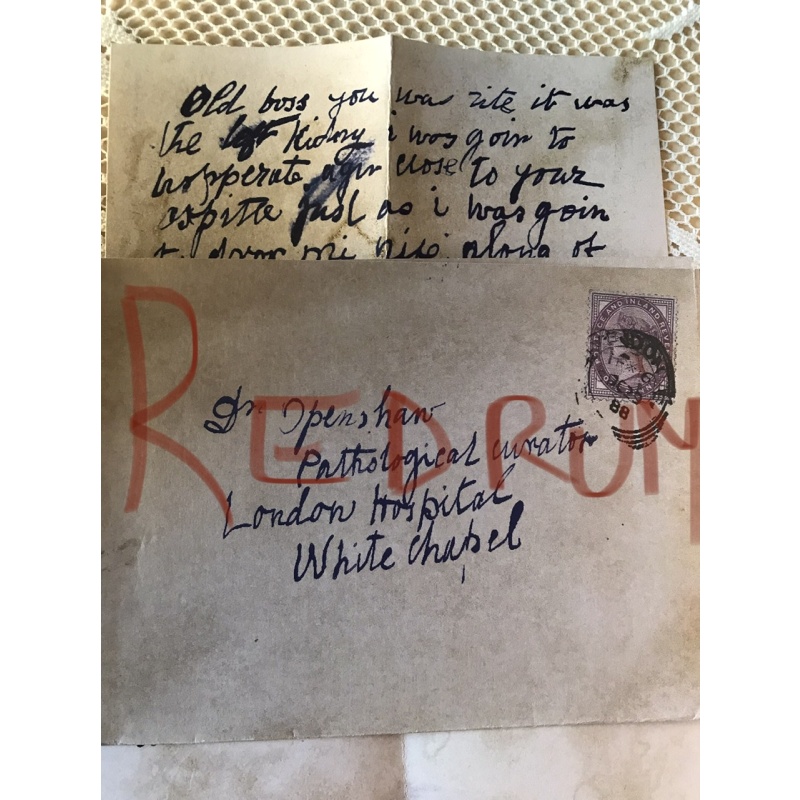 Old boss you was rite it was
the left Kidny i was goin to
hopperate agin close to your
ospitle just as i was goin
of
REDRUM
Dr Openshaw
Pathological curator
London Hospital
White chapel
CE AND INLAND REVE
88